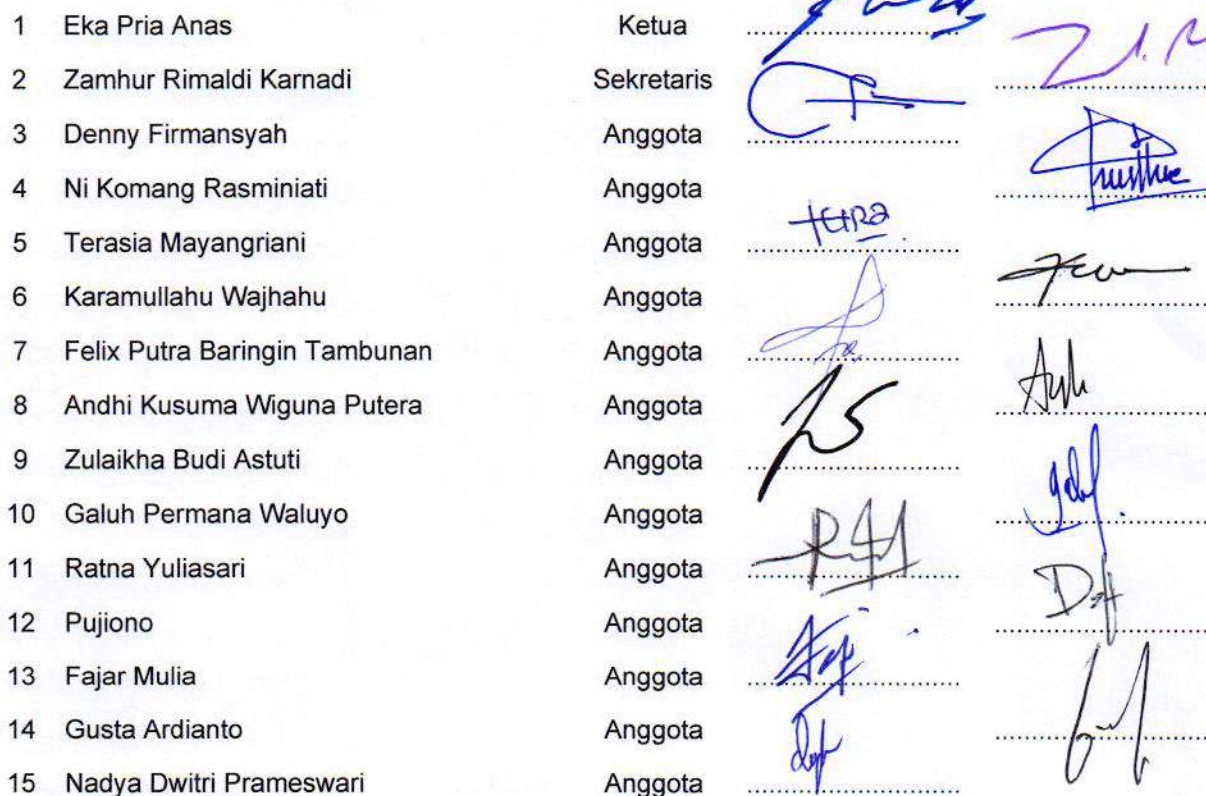 1 Eka Pria Anas Ketua
2 Zamhur Rimaldi Karnadi Sekretaris
3 Denny Firmansyah Anggota
4 Ni Komang Rasminiati Anggota
5 Terasia Mayangriani Anggota
6 Karamullahu Wajhahu Anggota
7 Felix Putra Baringin Tambunan Anggota
8 Andhi Kusuma Wiguna Putera Anggota
9 Zulaikha Budi Astuti Anggota
10 Galuh Permana Waluyo Anggota
11 Ratna Yuliasari Anggota
12 Pujiono Anggota
13 Fajar Mulia Anggota
14 Gusta Ardianto Anggota
15 Nadya Dwitri Prameswari Anggota